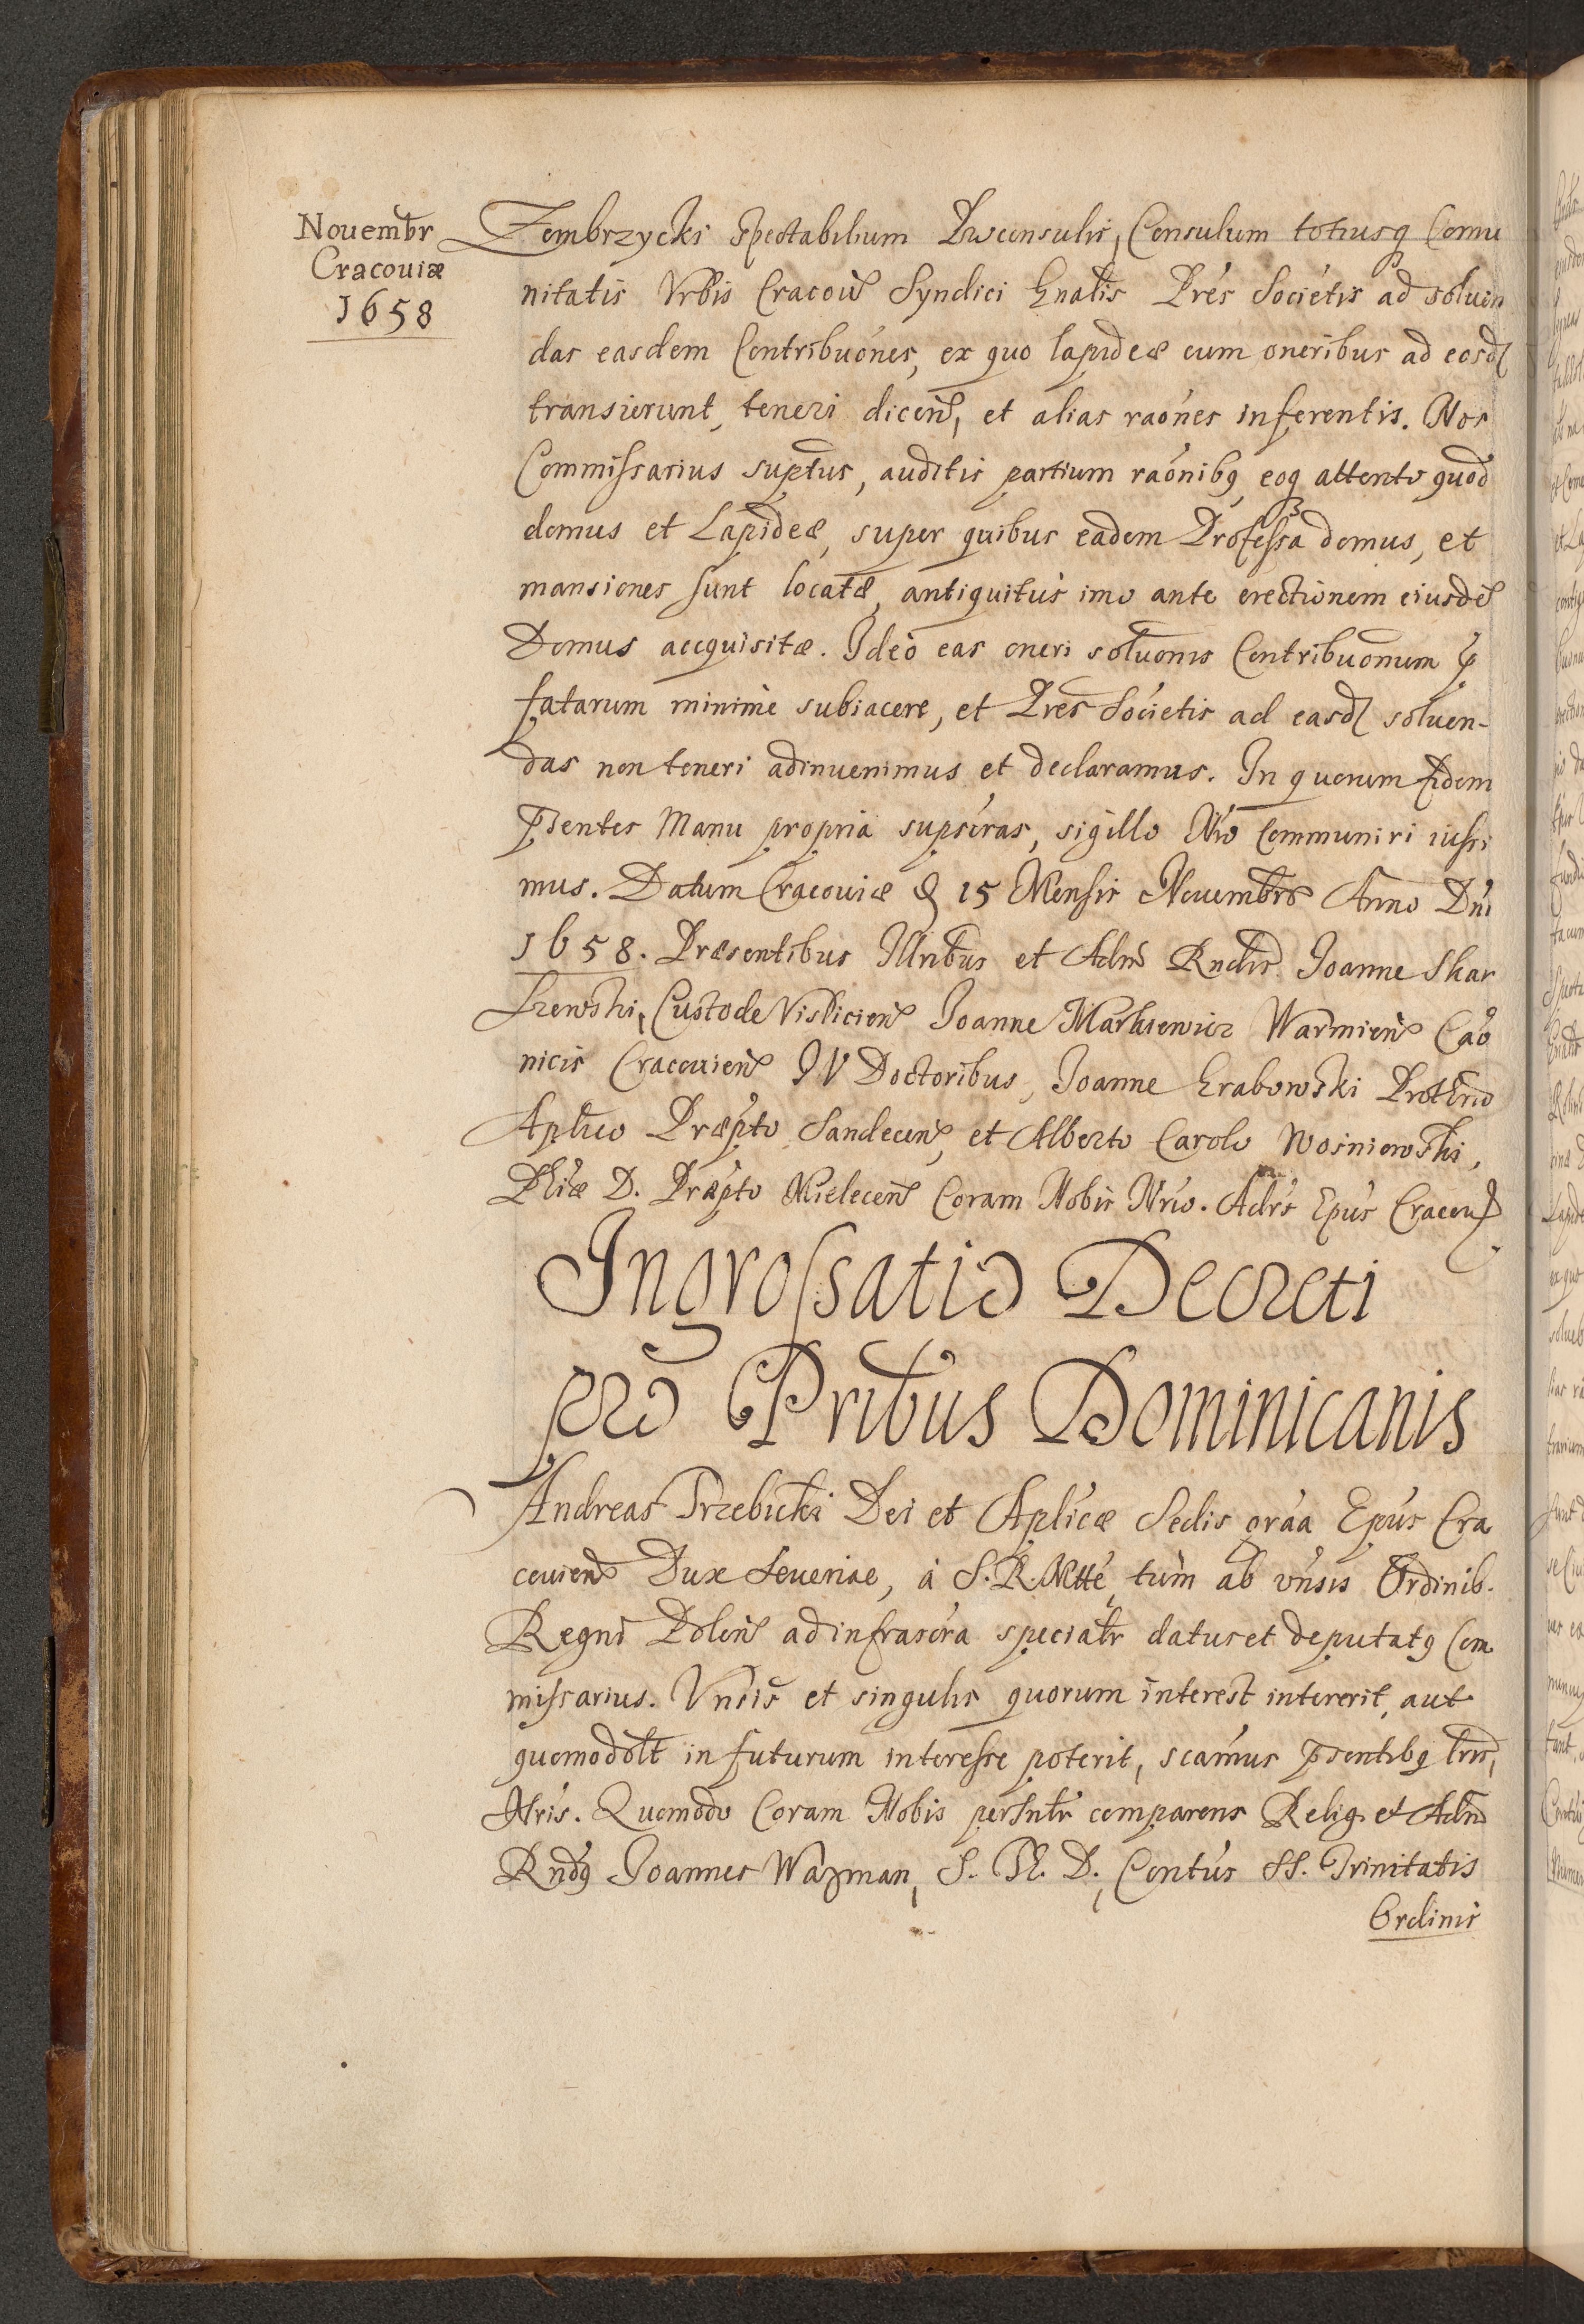 Nouembr
Cracouiæ
1658
Zembrzycki Spectabilium Proconsulis, Consulum totiusq Comu
nitatis Vrbis Cracouień Syndici Gnalis Pres Societis ad soluen
das easdem Contribuónes, ex quo lapideæ cum oneribus ad eosd
transierunt, teneri diceń, et alias raónes inferentis. Nos
Commissarius suptus, auditis partium raónibq, eoq attento quod
domus et Lapideæ, super quibus eadem Professa domus, et
mansiones sunt locatæ, antiquitus imo ante erectionem eiusdē
Domus accquisitæ. Ideò eas oneri soluonis Contribuonum p
fatarum minimè subiacere, et Pres Societis ad easd soluen-
das non teneri adinuenimus et declaramus. In quorum fidem
pſentes Manu propria supscras, sigillo Nro Communiri iuſsi
mus. Datum Cracouiæ D 15 Mensis Nouembris Anno Dni
1658. Præsentibus Illribus et Adm Rndis Joanne Skar
szewski, Custode Vislicień Joanne Markiewicz Warmień Cano
nicis Cracouień JV Doctoribus, Joanne Grabowski Protbrio
Aplico Præpto Sandeceń, et Alberto Carolo Wośniowski,
Phiæ D. Præpto Mieleceń Coram Nobis Nrio. Adrs Epus Cracou
Ingroſsatio Decreti
pro Pribus Dominicanis
Andreas Trzebicki Dei et Aplicæ Sedis gráa Epús Cra
couień Dux Seueriae, à S. R. Mtte, tùm ab vnsis Ordinib.
Regni Poloń ad infrascra specialr datus et deputatq Com
miſsarius. Vnsis et singulis quorum interest intererit, aut
quomodolt in futurum intereſse poterit, scamus pſentibq lris,
Nris. Quomodo Coram Nobis persnlr comparens Relig. et Adm
Rndq Joannes Wazman, S. Th. D., Contus SS. Trinitatis
Ordinis